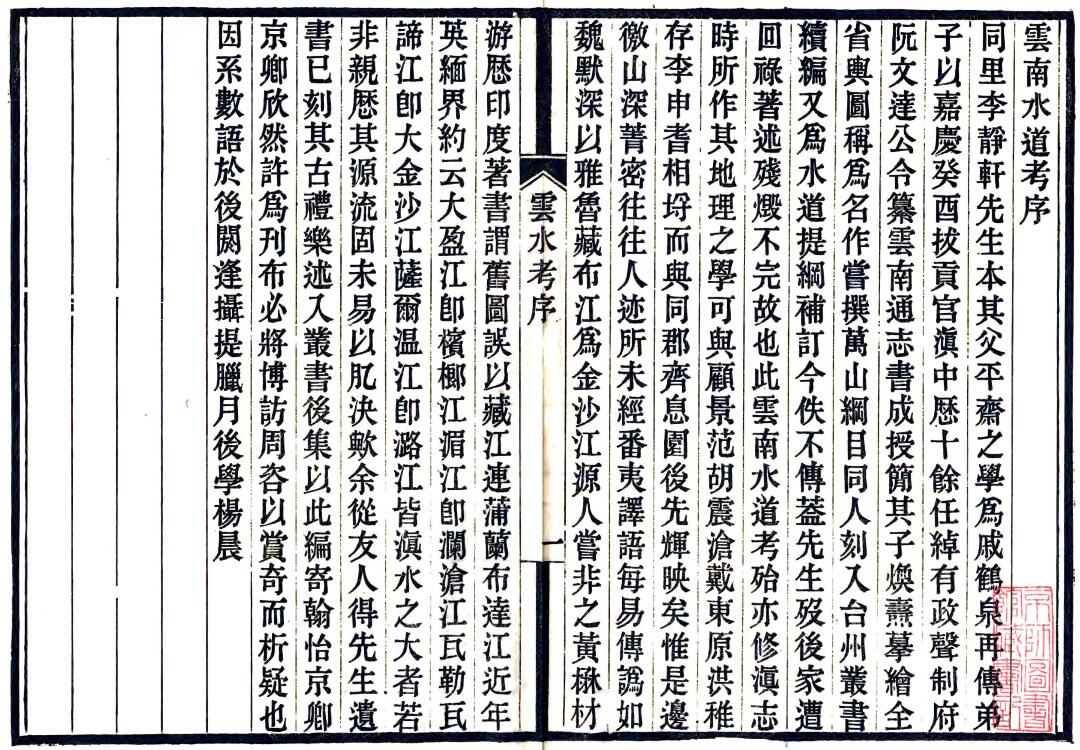 雲南水道考序
同里李靜軒先生本其父平齋之學爲戚鶴泉再傳弟
子以嘉慶癸酉拔貢官滇中歷十餘任綽有政聲制府
阮文達公令纂雲南通志書成授簡其子煥燾摹繪全
省輿圖稱爲名作嘗撰萬山綱目同人刻入台州叢書
續編又爲水道提綱補訂今佚不傳蓋先生歿後家遭
回祿著述殘燬不完故也此雲南水道考殆亦修滇志
時所作其地理之學可與顧景范胡震滄戴東原洪稚
存李申耆相埒而與同郡齊息園後先輝映矣惟是邊
徼山深菁密往往人迹所未經番夷譯語每易傳譌如
魏默深以雅魯藏布江爲金沙江源人嘗非之黃楙材
雲水考序
一
游歷印度著書謂舊圖誤以藏江連蒲蘭布達江近年
英緬界約云大盈江卽檳榔江湄江卽瀾滄江瓦勒瓦
諦江卽大金沙江薩爾温江卽潞江皆滇水之大者若
非親歷其源流固未易以肊決歟余從友人得先生遺
書已刻其古禮樂述入叢書後集以此編寄翰怡京卿
京卿欣然許爲刊布必將博訪周咨以賞奇而析疑也
因系數語於後閼逢攝提臘月後學楊晨
京師圖書
館藏書印